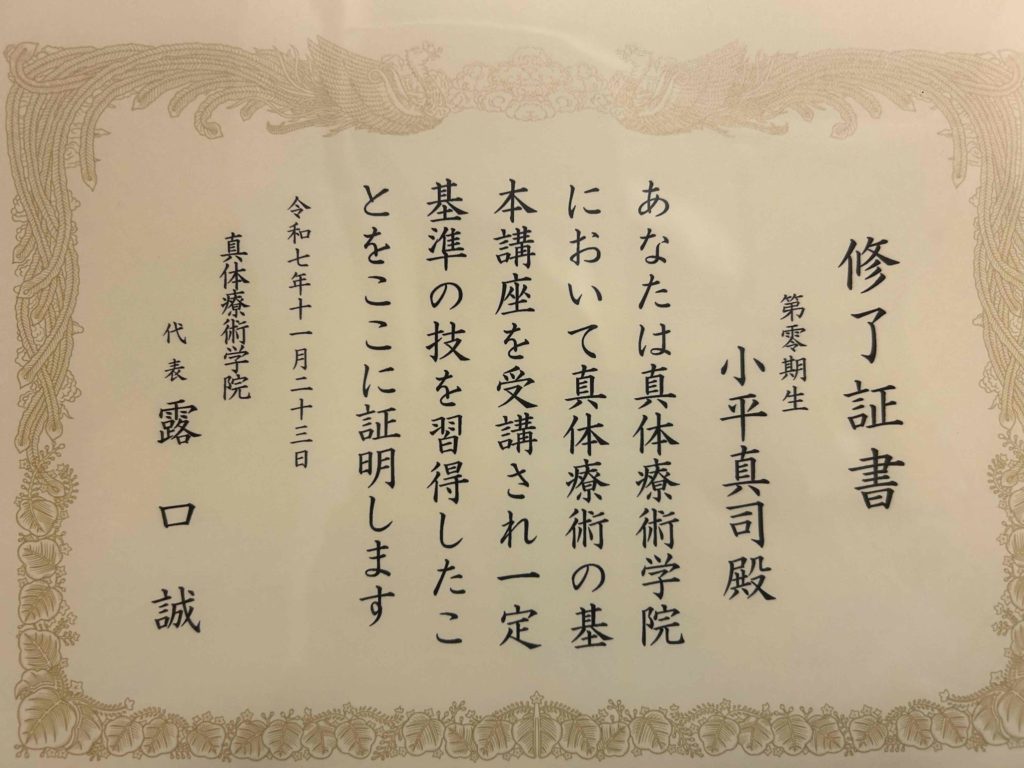 修了証書
第零期生
小平真司殿
あなたは真体療術学院
において真体療術の基
本講座を受講され一定
基準の技を習得したこ
とをここに証明します
令和七年十一月二十三日
真体療術学院
代表 露口誠